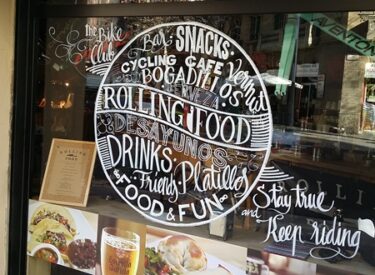 the Bike
Club
Bar SNACKS
CYCLING CAFE Vermut
BOCADILLOS
CERVEZA
ROLLING FOOD
DESAYUNOS
DRINKS
Friends Platillos
FOOD & FUN
Stay true
and Keep riding
ROLLING
FOOD